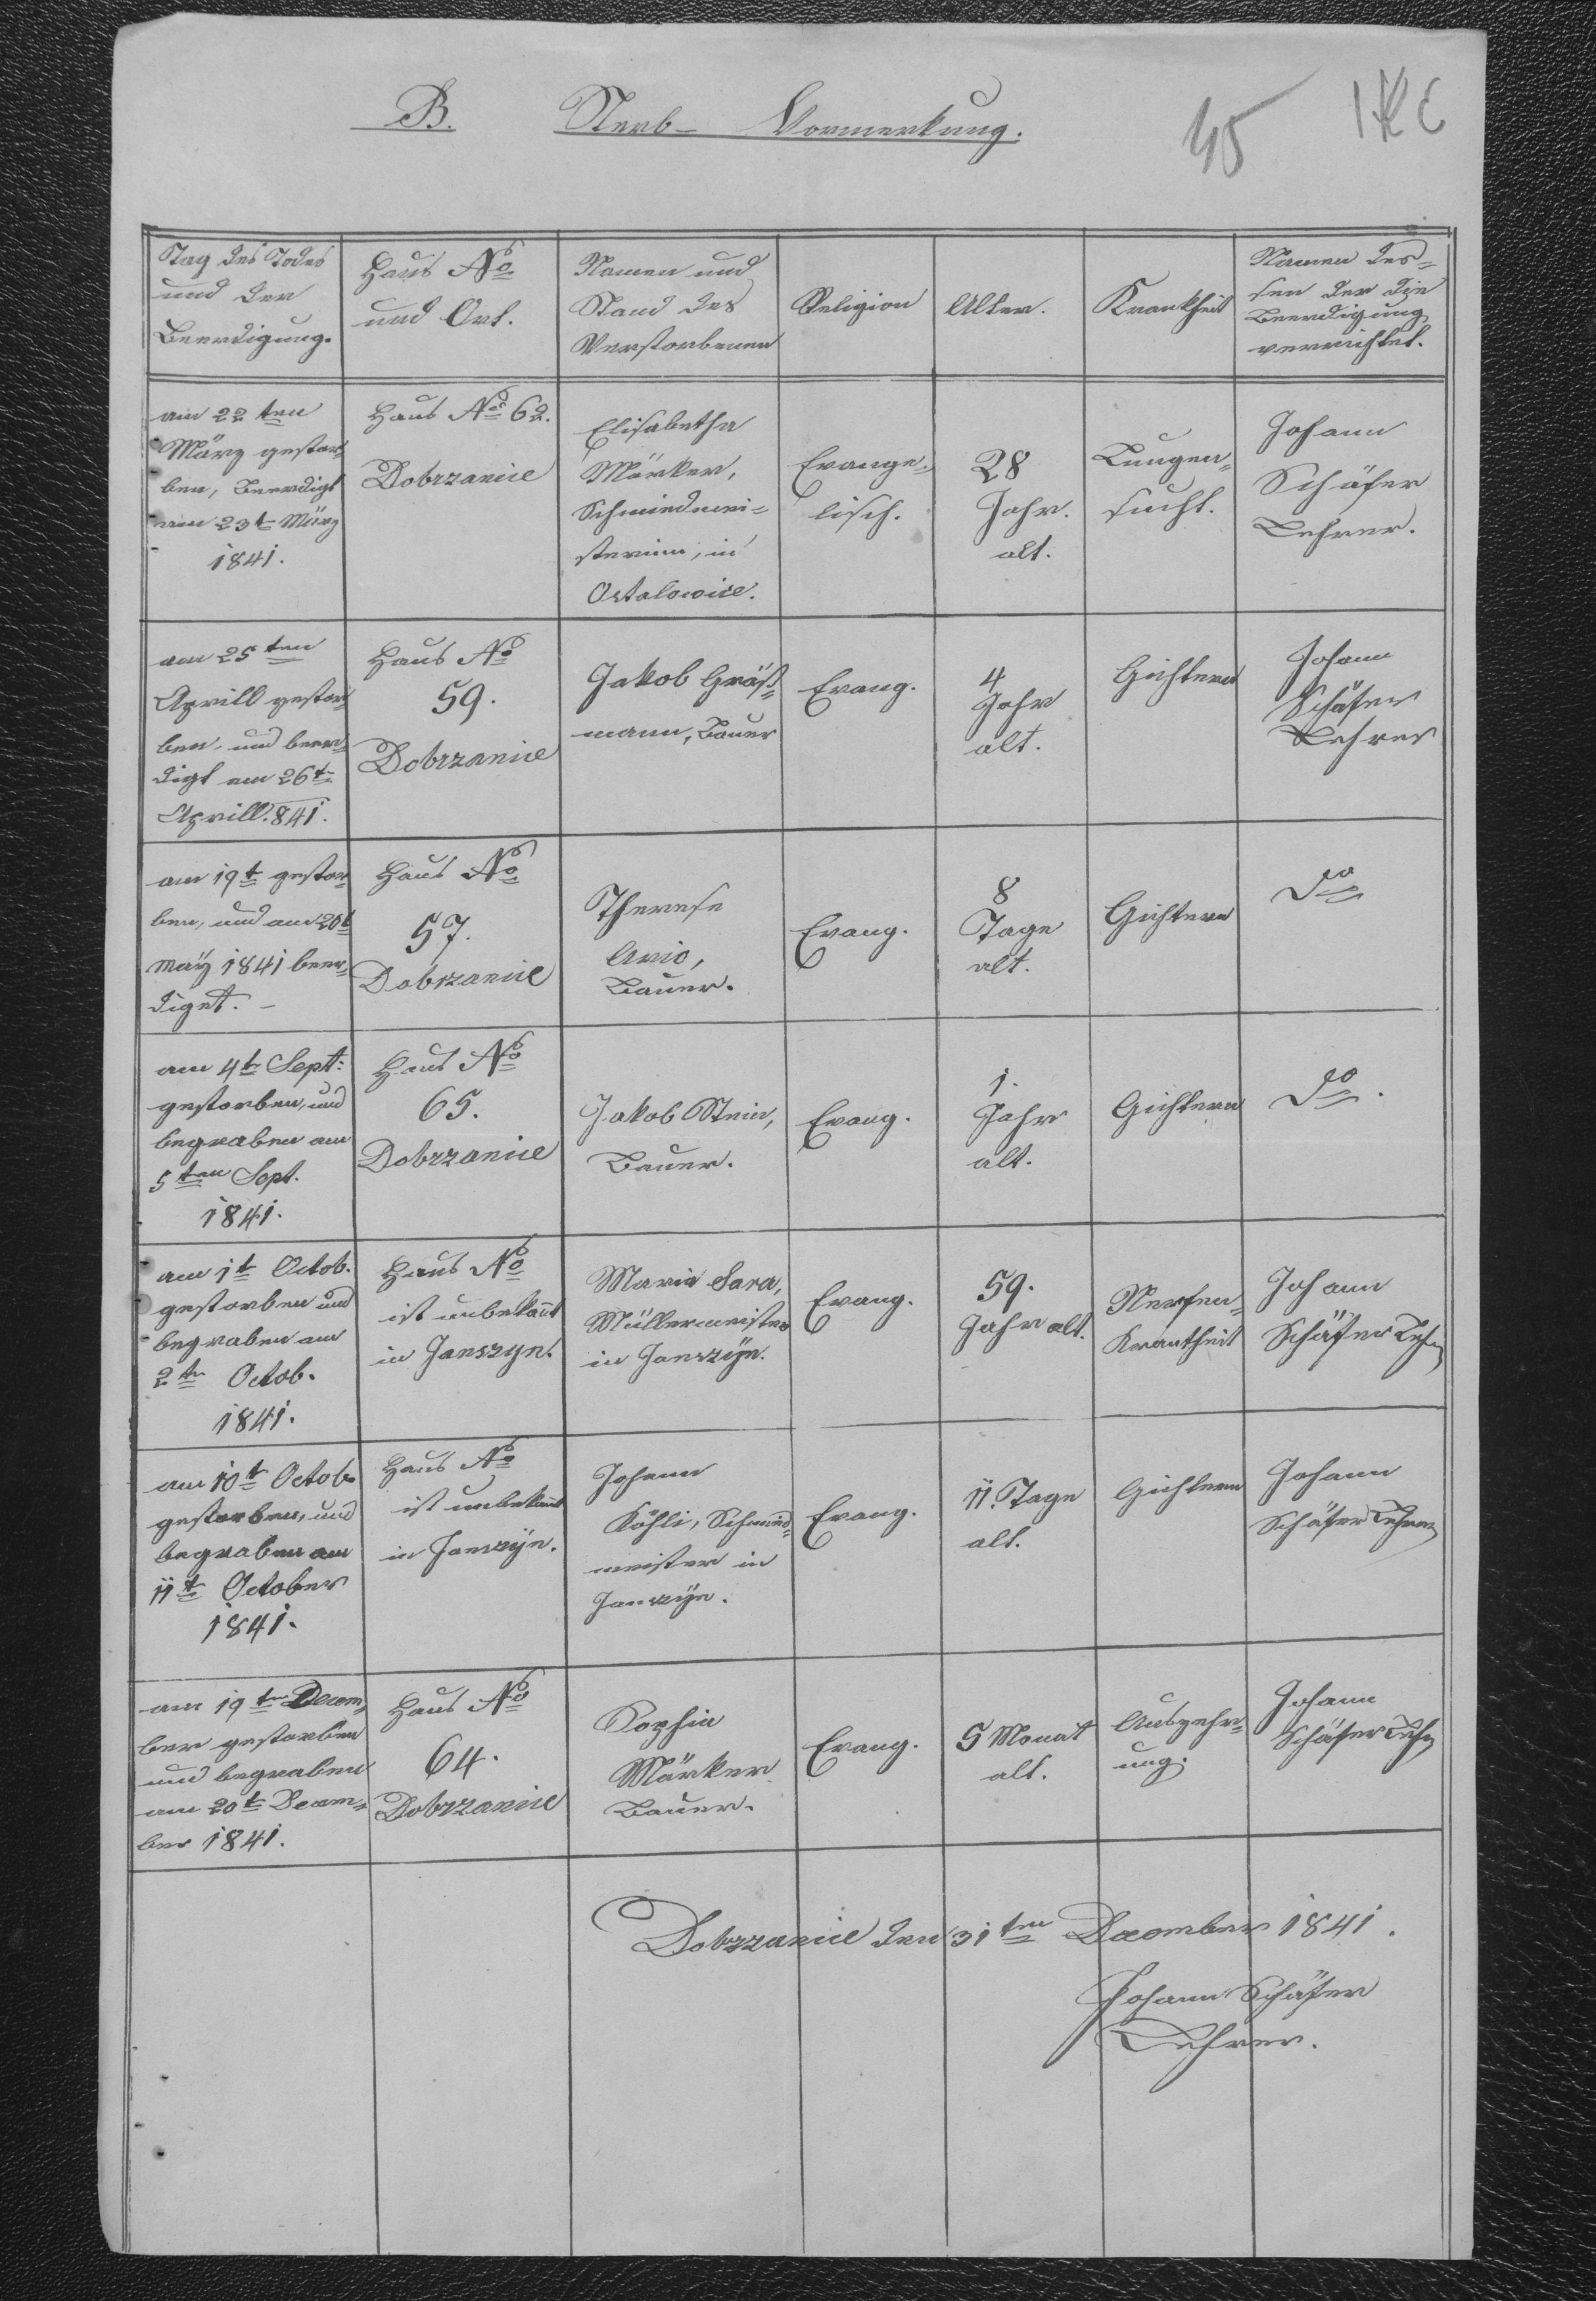 B. Sterb- Vormerkung.
45
Tag des Todes
und der
Beerdigung.
Haus No
und Ort.
Namen und
Stand des
Verstorbenen
Religion
Alter.
Krankheit
Namen des=
sen der die
Beerdigung
verrichtet.
am 22ten
März gestor=
ben, beerdigt
am 23t März
1841.
Haus No 62.
Dobrzanice
Elisabetha
Märker,
Schmiedmei=
sterinn, in
Ostalowice.
Evange=
lisch.
28
Jahr.
alt.
Lungen=
sucht.
Johann
Schäfer
Lehrer.
am 25ten
Aprill gestor=
ben, und beer=
digt am 26t
Aprill. 841.
Haus No
59.
Dobrzanice
Jakob Gräß=
mann, Bauer
Evang.
4
Jahr
alt.
Gichtern
Johann
Schäfer
Lehrer
am 19t gestor=
ben, und am 20t
maÿ 1841 beer=
diget. -
Haus No
57.
Dobrzanice
Therese
Bauer.
Evang.
8
Tage
alt.
Gichtern
do
am 4t Sept:
gestorben, und
begraben am
5ten Sept.
1841.
Haus No
65.
Dobrzanice
Jakob Stein,
Bauer.
Evang.
1.
Jahr
alt.
Gichtern
do.
am 1t Octob.
gestorben und
begraben am
2tn Octob.
1841.
Haus No
ist unbekañt
in Janszyn.
Maria Sara,
Müllermeister
in Janszÿn.
Evang.
59.
Jahr alt.
Nerfen=
Krankheit
Johann
Schäfer Lehr
am 10t Octob.
gestorben, und
begraben am
11t October
1841.
Haus No
ist unbekañt
in Janszÿn.
Johann
Köhli, Schmied=
meister in
Janszÿn.
Evang.
11. Tage
alt.
Gichtern
Johann
Schäfer Lehrer
am 19tn Decem=
ber gestorben
und begraben
am 20t Decem=
ber 1841.
Haus No
64.
Dobrzanice
Sophia
Märker
Bauer.
Evang.
5 Monat
alt.
Auszehr=
ung.
Johann
Schäfer Lehr
Dobrzanice den 31ten December 1841.
Johann Schäfer
Lehrer.